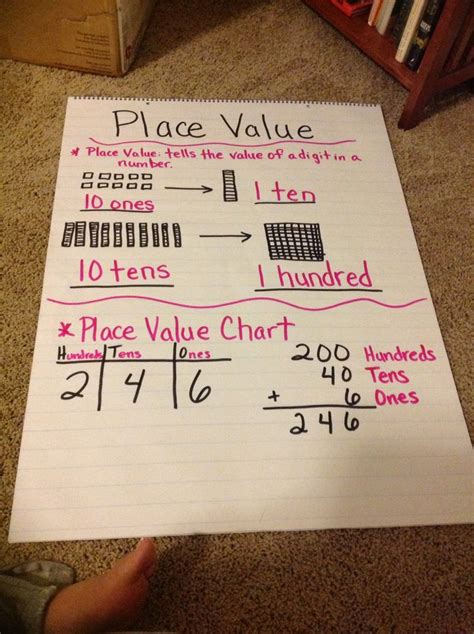 Place Value
* Place Value: tells the value of a digit in a
number.
10 ones 1 ten
10 tens 1 hundred
* Place Value Chart
Hundreds Tens Ones
2 4 6
200 Hundreds
40 Tens
+ 6 Ones
246